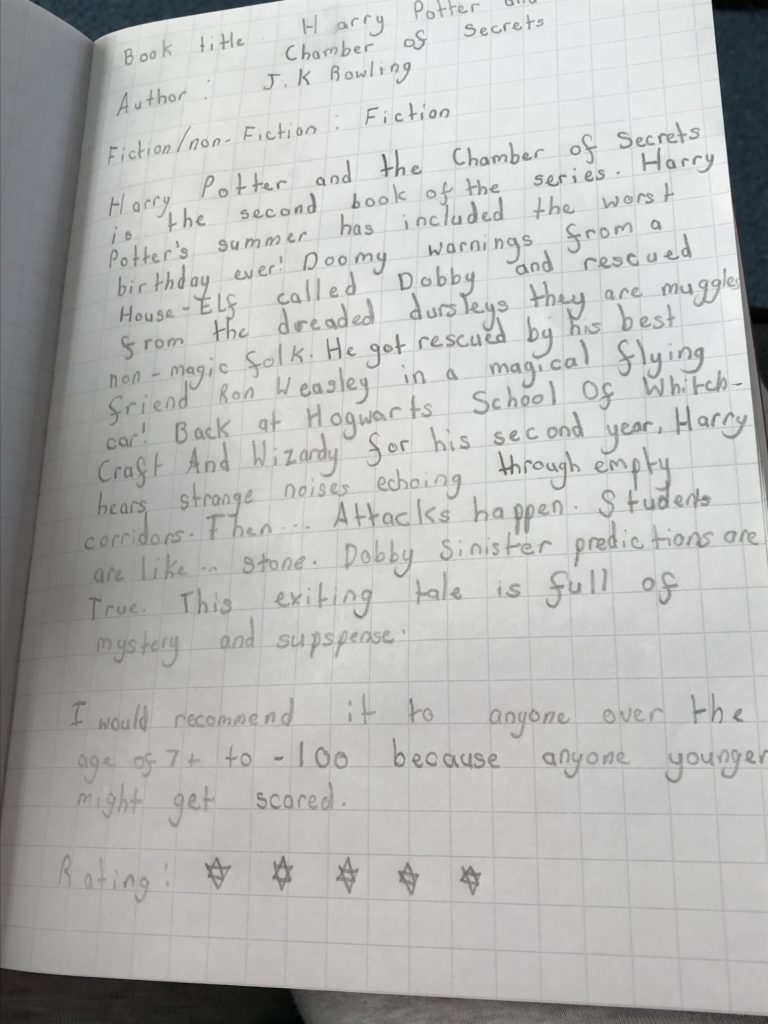 Book title : Harry Potter and
Chamber of Secrets
Author : J.K Rowling
Fiction/non-Fiction : Fiction
Harry Potter and the Chamber of Secrets
is the second book of the series. Harry
Potter's summer has included the worst
birthday ever! Doomy warnings from a
House-Elf called Dobby and rescued
from the dreaded dursleys they are muggles
non-magic folk. He got rescued by his best
friend Ron Weasley in a magical flying
car! Back at Hogwarts School Of Whitch-
Craft And Wizardy for his second year, Harry
hears strange noises echoing through empty
corridors. Then... Attacks happen. Students
are like... stone. Dobby Sinister predictions are
True. This exiting tale is full of
mystery and supspense.
I would recommend it to anyone over the
age of 7+ to -100 because anyone younger
might get scared.
Rating: